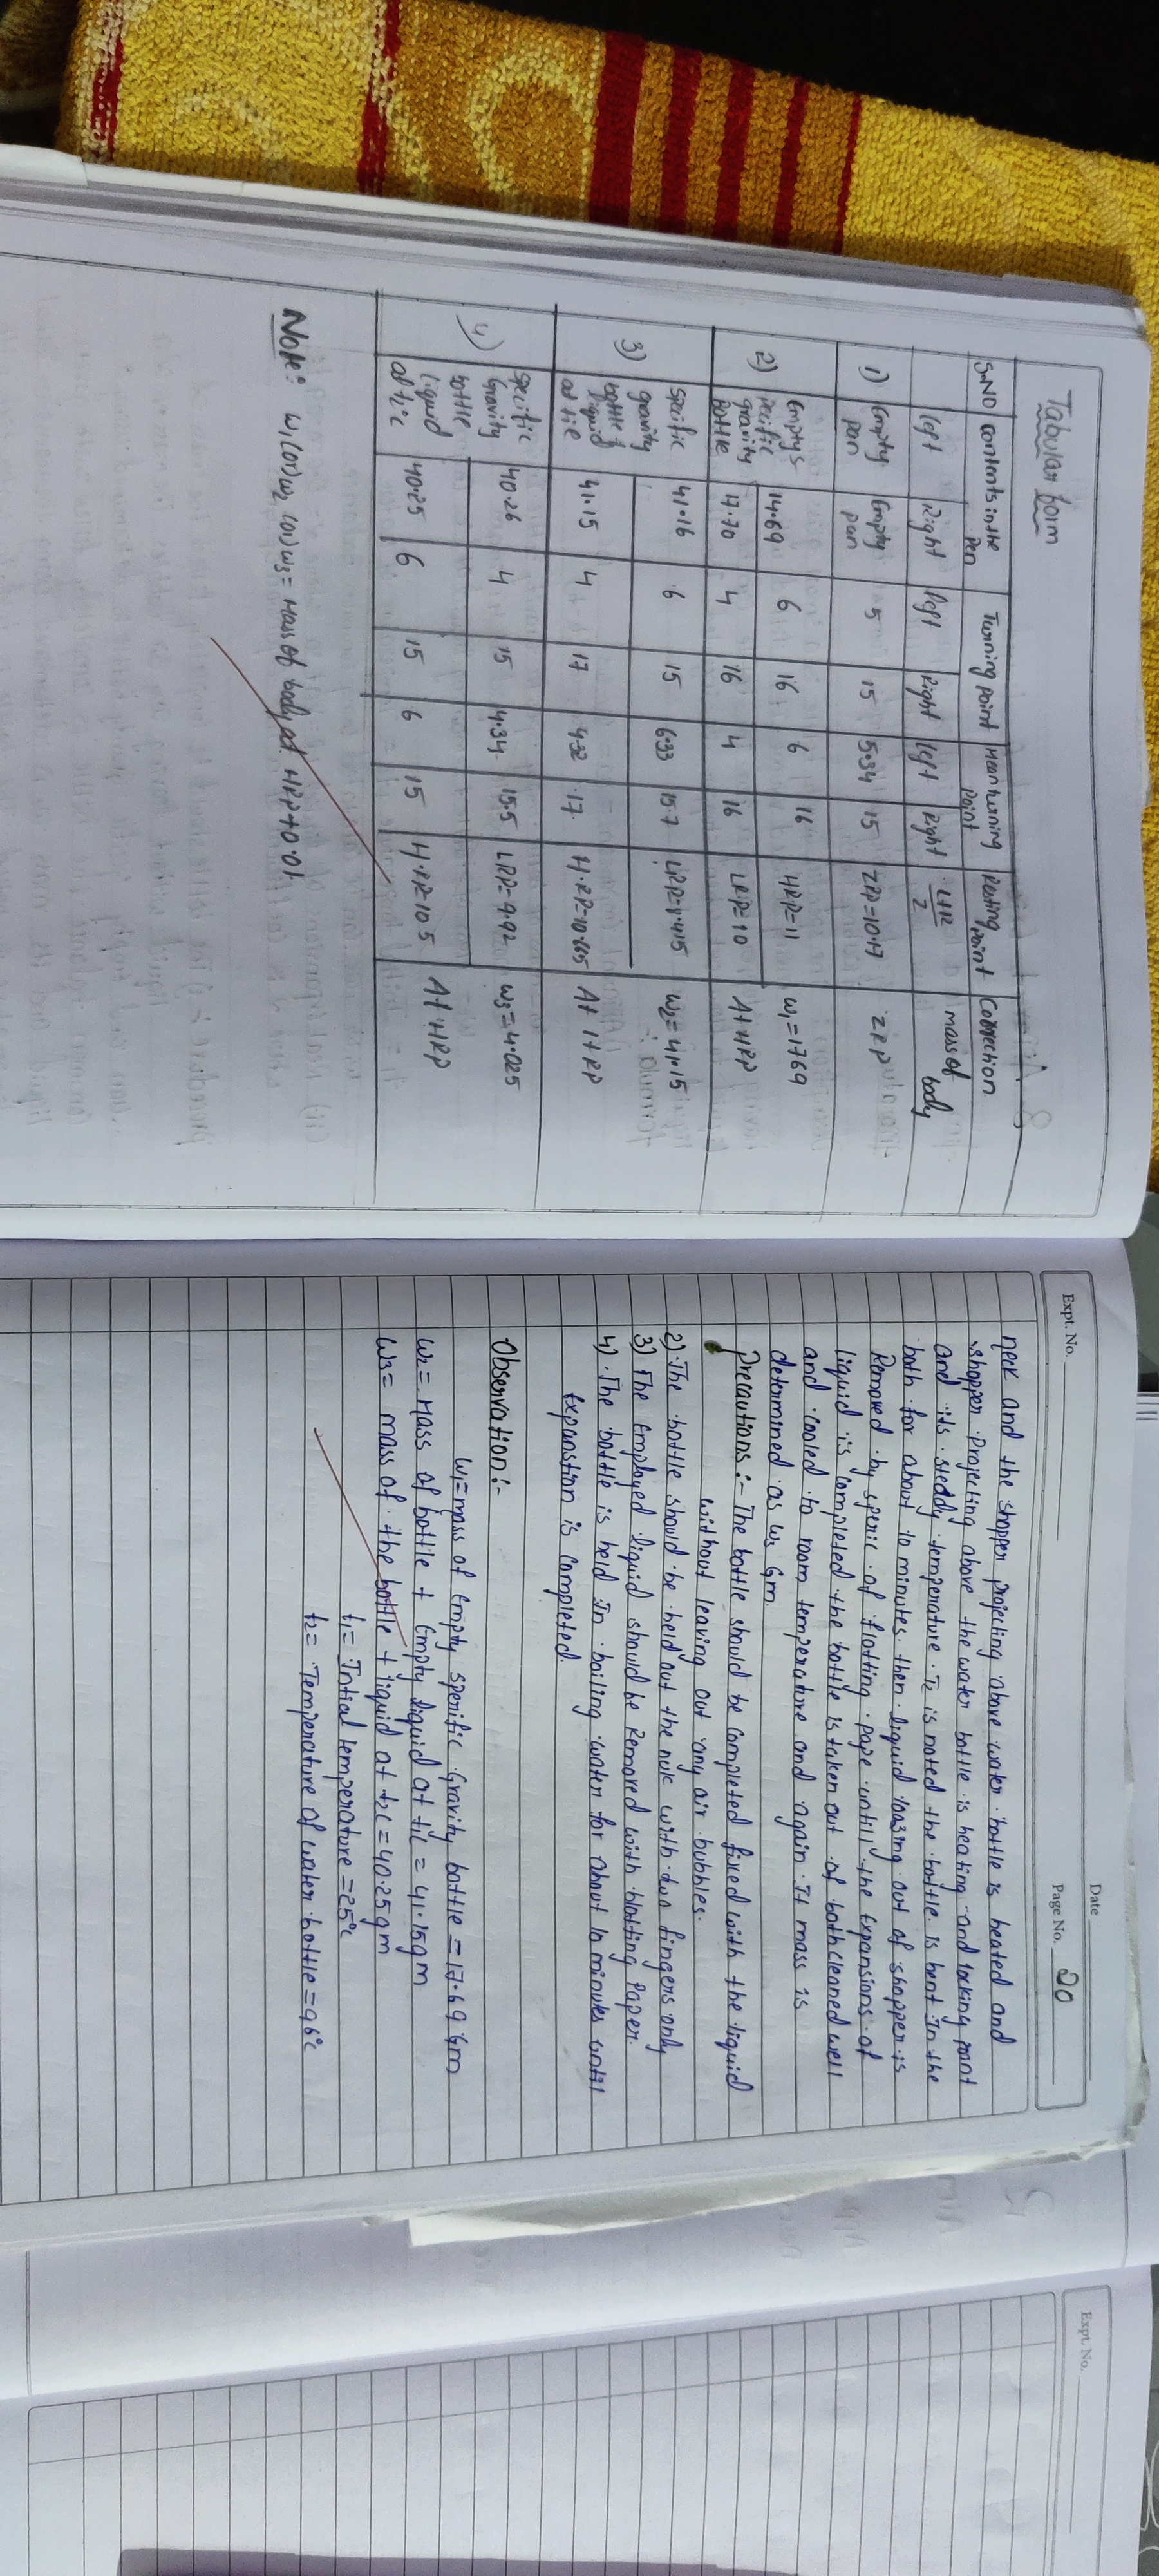 Tabular form
S.NO contents in the pen Turning point Mean turning point Resting point Correction
left Right left Right left Right L+R/2 mass of body
1) Empty pan Empty pan 5 15 5.34 15 ZRP=10.17 ZRP
2) Empty s pecific gravity bottle 14.69 6 16 6 16 HRP=11 w1=1769
17.70 4 16 4 16 LRP=10 At HRP
3) specific gravity bottle & liquid at t1c 41.16 6 15 6.33 15.7 w2=41.15
41.15 4 17 4.32 17. H.RP=10.665 At HRP
4) specific Gravity bottle liquid at t2c 40.26 4 15 4.34 15.5 LRP=9.92 w3=4.025
40.25 6 15 6 15 H.RP=10.5 At HRP
Note: w1(or)w2 (or)w3= mass of body at HRP+0.01.
Expt. No.
Date
Page No. 20
neck and the shopper projecting above water bottle is heated and
shopper projecting above the water bottle is heating and locking point
and its steddy temperature. T2 is noted the bottle is bent In the
both for about 10 minutes. then liquid loasing out of shapper is
Removed by speric of flotting pape untill the expansions of
liquid is completed the bottle is taken out of both cleaned well
and cooled to room temperature and again. It mass is
determined as w3 Gm.
Precautions :- The bottle should be completed fixed with the liquid
without leaving out any air bubbles.
2) The bottle should be held out the nuk with two fingers only
3) The Employed liquid should be Removed with blotting paper.
4) The bottle is held In boiling water for about 10 minutes until
Expanstion is completed.
Observation:-
w1=mass of Empty sperific Gravity bottle = 17.69 Gm
w2= mass of bottle + Empty liquid at t1c = 41.15gm
w3= mass of the bottle + liquid at t2c = 40.25gm
t1= Intial temperature = 25°c
t2= Temperature of water bottle = 96°c
Expt. No.